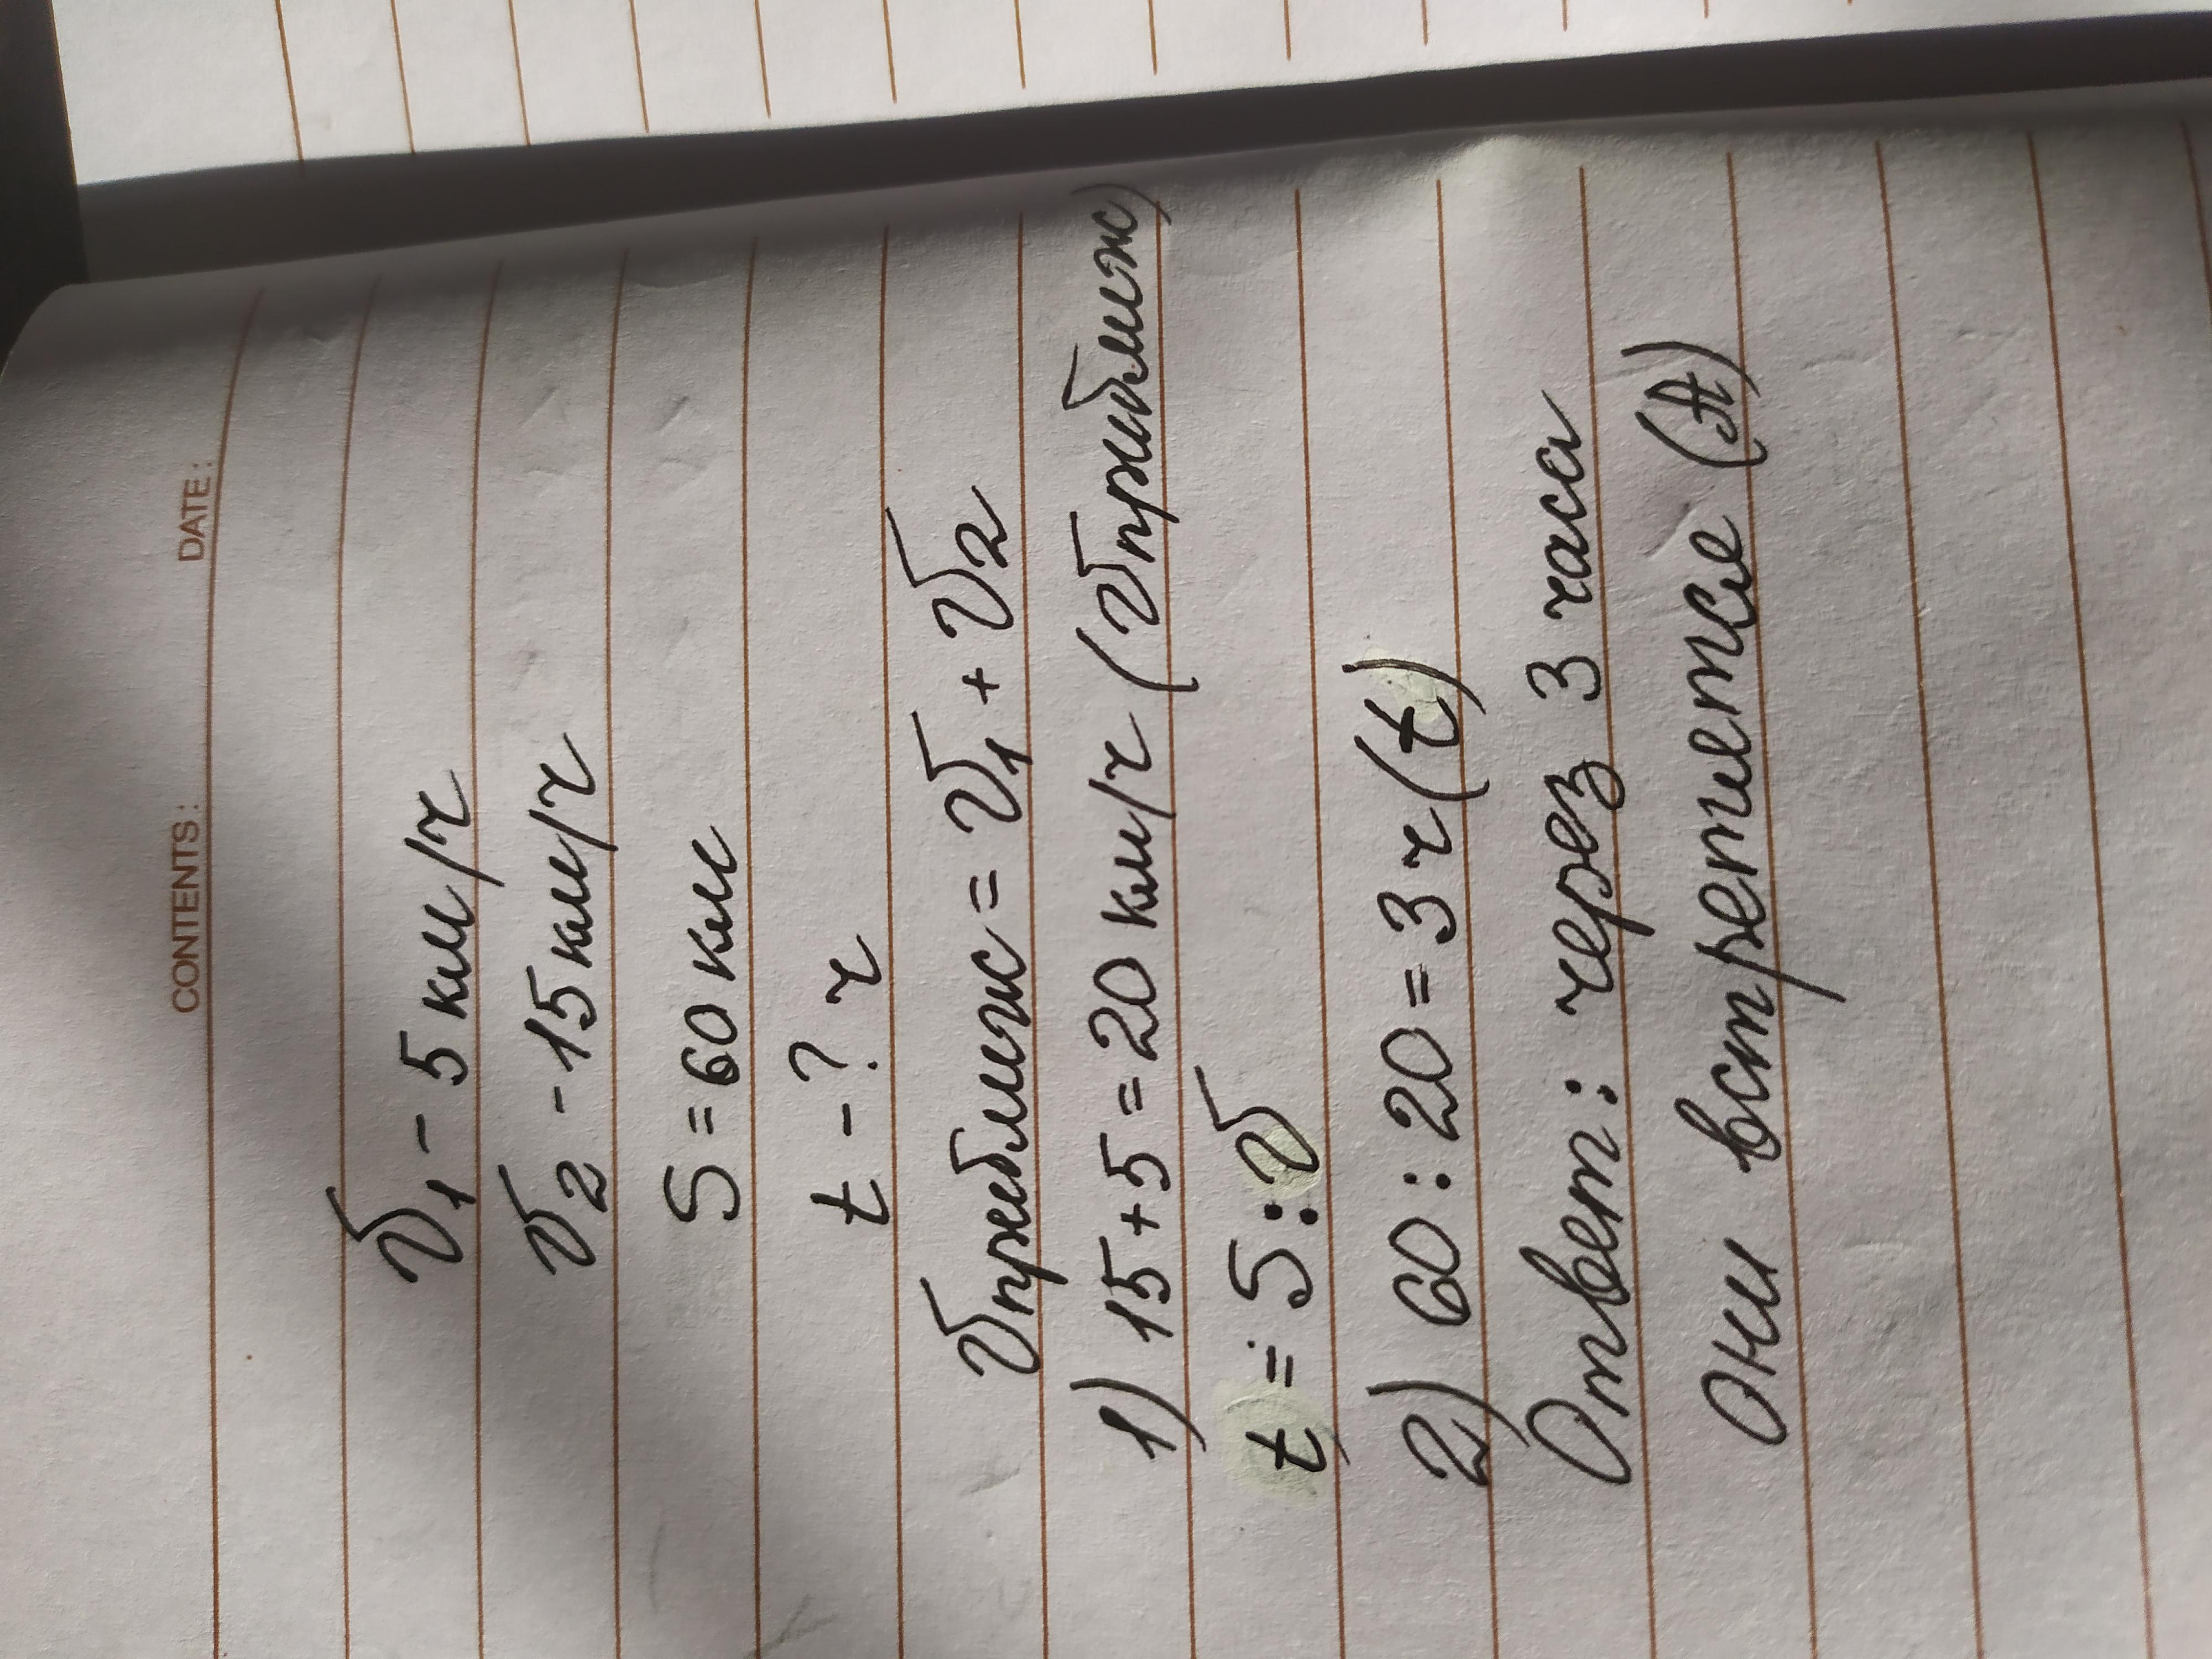 CONTENTS: DATE:
V1 - 5 км/ч
V2 - 15 км/ч
S = 60 км
t - ? ч
Vприближ = V1 + V2
1) 15 + 5 = 20 км/ч (Vприближ)
t = S : V
2) 60 : 20 = 3 ч (t)
Ответ: через 3 часа
они встретятся (А)